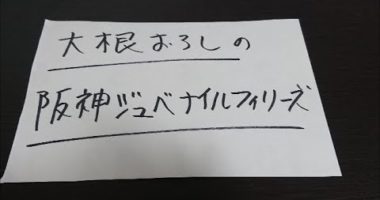 大根おろしの
阪神ジュベナイルフィリーズ